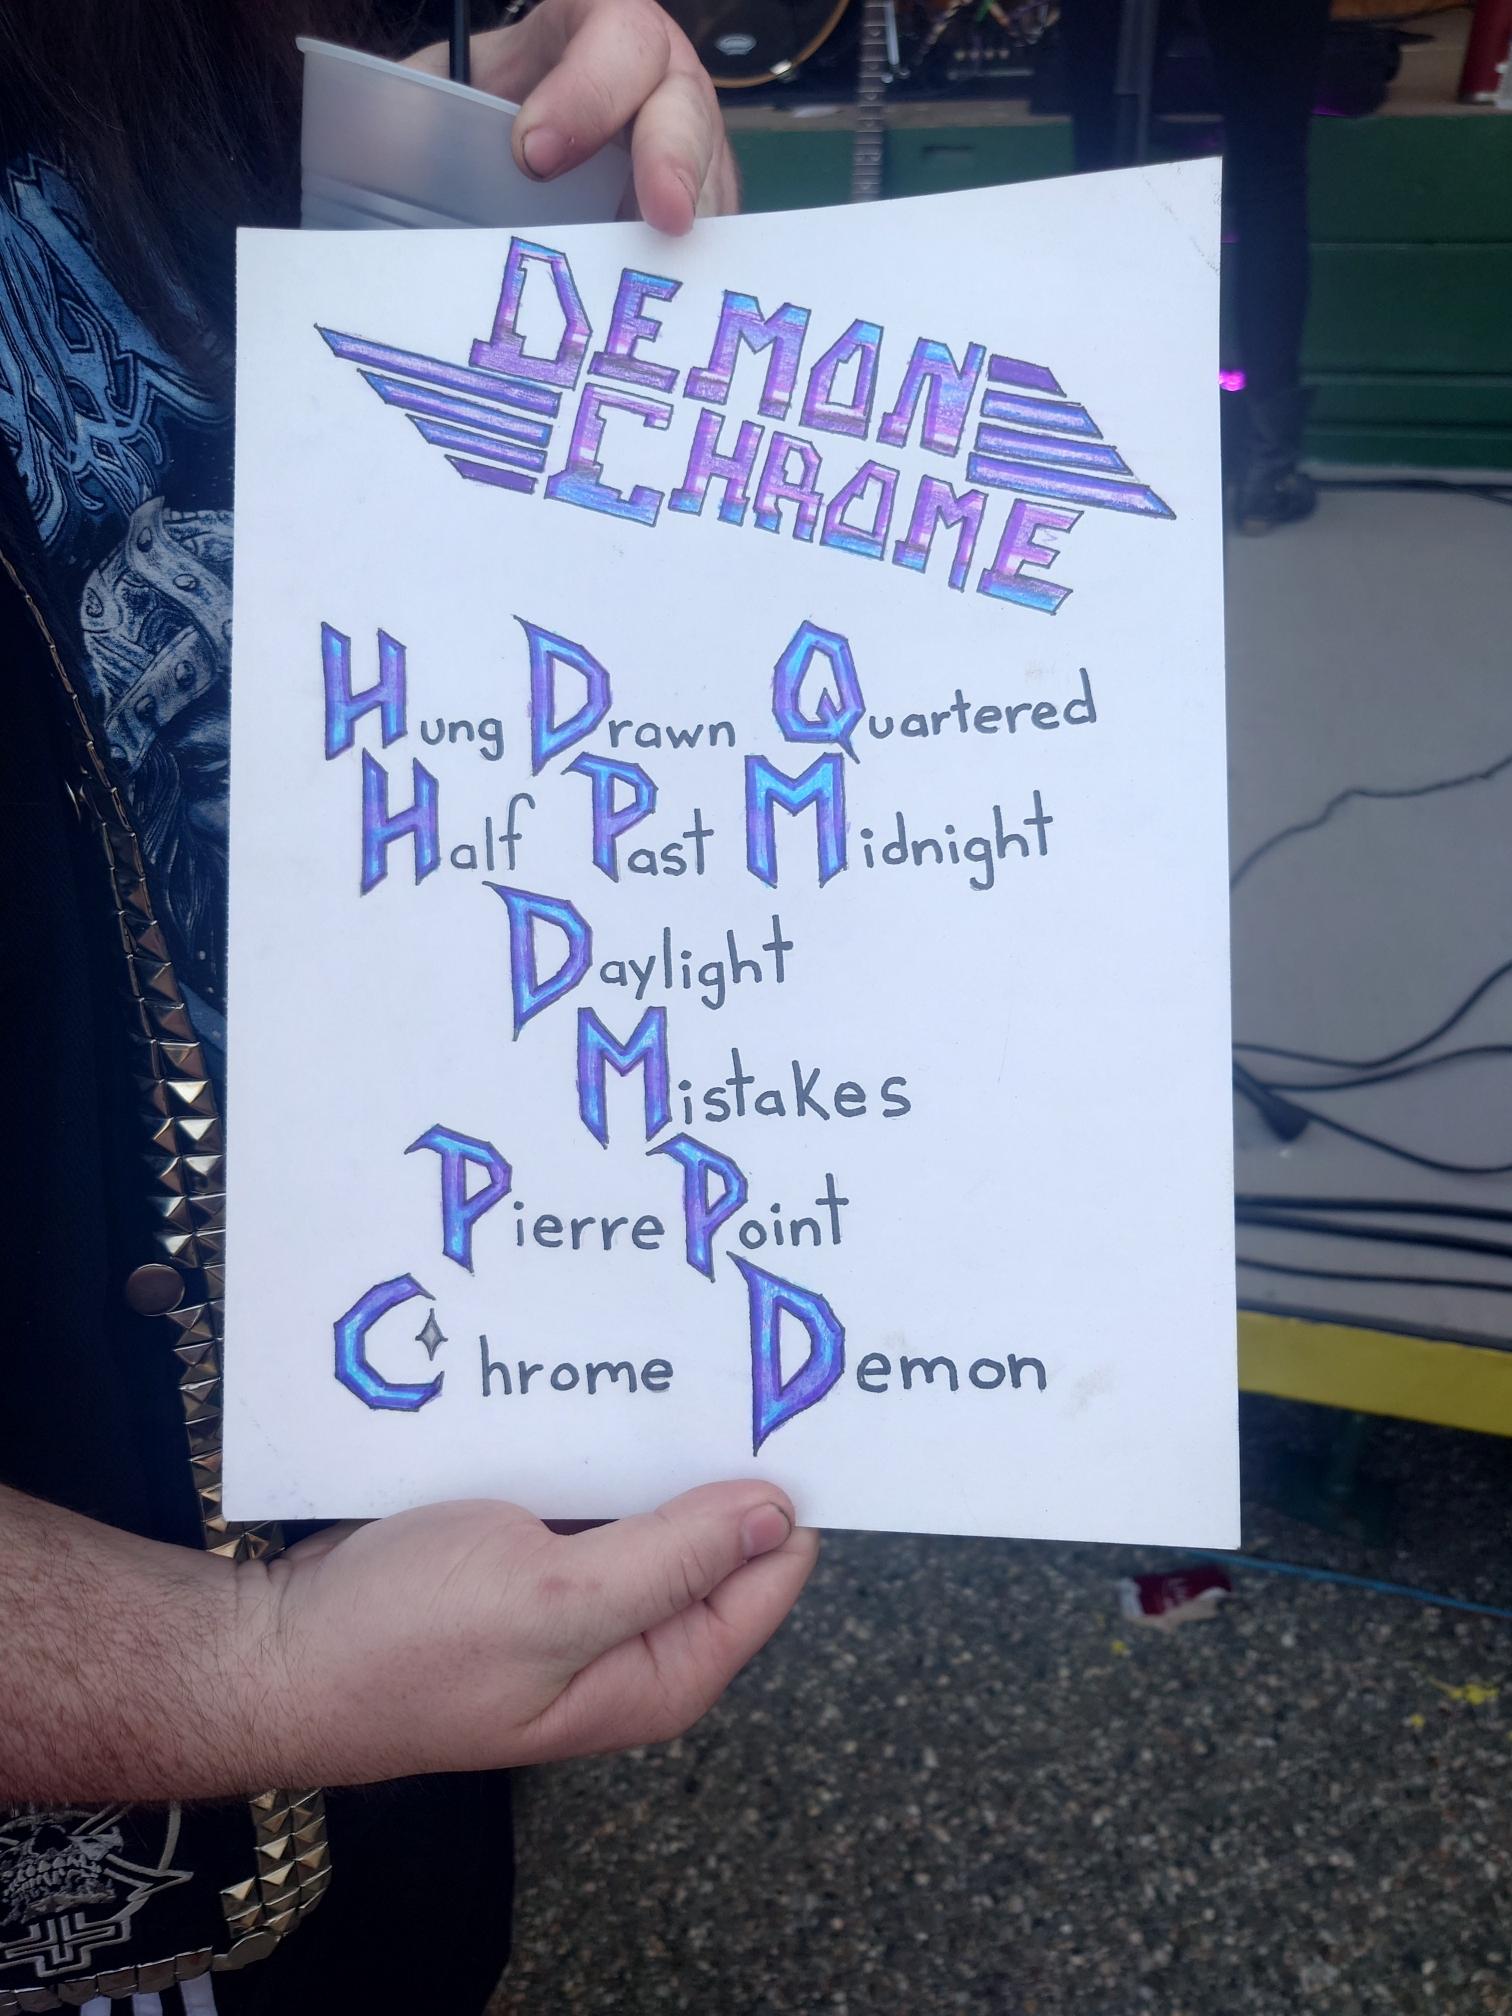 DEMON
CHROME
Hung Drawn Quartered
Half Past Midnight
Daylight
Mistakes
Pierre Point
Chrome Demon